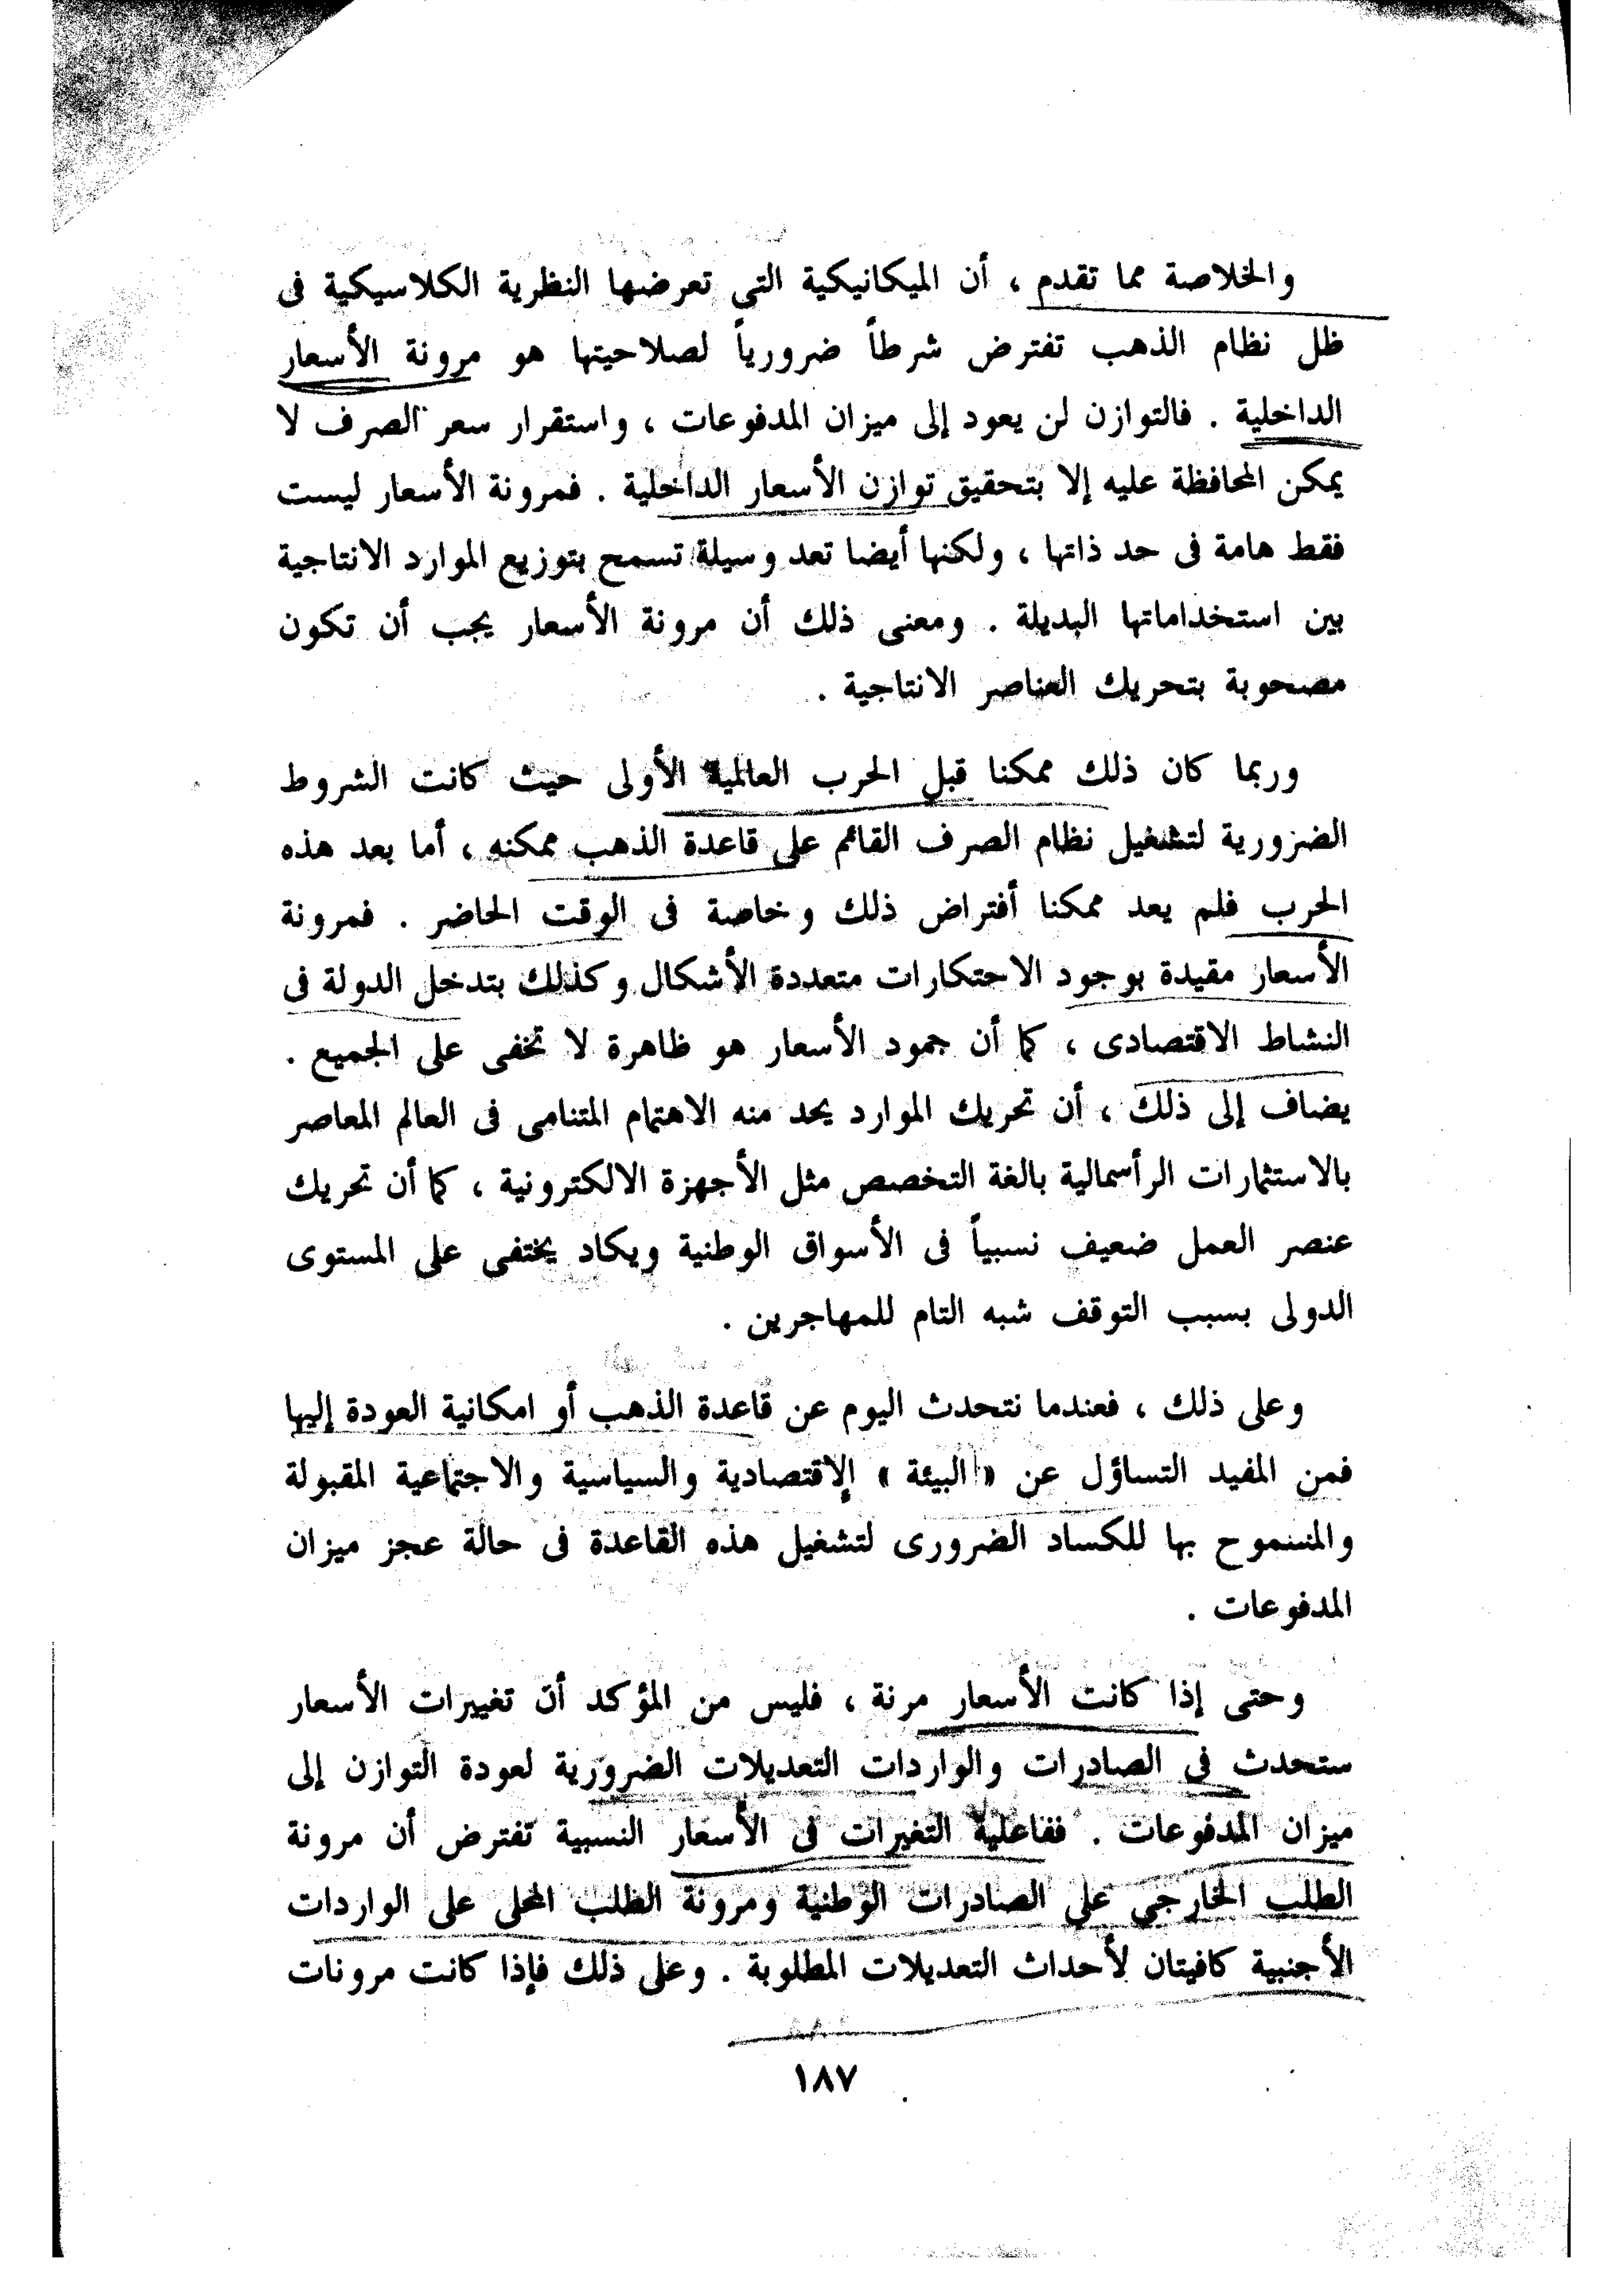 والخلاصة مما تقدم ، أن الميكانيكية التي تعرضها النظرية الكلاسيكية فى
ظل نظام الذهب تفترض شرطاً ضرورياً لصلاحيتها هو مرونة الأسعار
الداخلية . فالتوازن لن يعود إلى ميزان المدفوعات ، واستقرار سعر الصرف لا
يمكن المحافظة عليه إلا بتحقيق توازن الأسعار الداخلية . فمرونة الأسعار ليست
فقط هامة فى حد ذاتها ، ولكنها أيضا تعد وسيلة تسمح بتوزيع الموارد الانتاجية
بين استخداماتها البديلة . ومعنى ذلك أن مرونة الأسعار يجب أن تكون
مصحوبة بتحريك العناصر الانتاجية .
وربما كان ذلك ممكنا قبل الحرب العالمية الأولى حيث كانت الشروط
الضرورية لتشغيل نظام الصرف القائم على قاعدة الذهب ممكنه ، أما بعد هذه
الحرب فلم يعد ممكنا أفتراض ذلك وخاصة فى الوقت الحاضر . فمرونة
الأسعار مقيدة بوجود الاحتكارات متعددة الأشكال وكذلك بتدخل الدولة فى
النشاط الاقتصادى ، كما أن جمود الأسعار هو ظاهرة لا تخفى على الجميع .
يضاف إلى ذلك ، أن تحريك الموارد يحد منه الاهتمام المتنامى فى العالم المعاصر
بالاستثمارات الرأسمالية بالغة التخصص مثل الأجهزة الالكترونية ، كما أن تحريك
عنصر العمل ضعيف نسبياً فى الأسواق الوطنية ويكاد يختفى على المستوى
الدولى بسبب التوقف شبه التام للمهاجرين .
وعلى ذلك ، فعندما نتحدث اليوم عن قاعدة الذهب أو امكانية العودة إليها
فمن المفيد التساؤل عن « البيئة » الإقتصادية والسياسية والاجتماعية المقبولة
والمسموح بها للكساد الضرورى لتشغيل هذه القاعدة فى حالة عجز ميزان
المدفوعات .
وحتى إذا كانت الأسعار مرنة ، فليس من المؤكد أن تغييرات الأسعار
ستحدث فى الصادرات والواردات التعديلات الضرورية لعودة التوازن إلى
ميزان المدفوعات . ففاعلية التغيرات فى الأسعار النسبية تفترض أن مرونة
الطلب الخارجى على الصادرات الوطنية ومرونة الطلب المحلى على الواردات
الأجنبية كافيتان لأحداث التعديلات المطلوبة . وعلى ذلك فإذا كانت مرونات
١٨٧